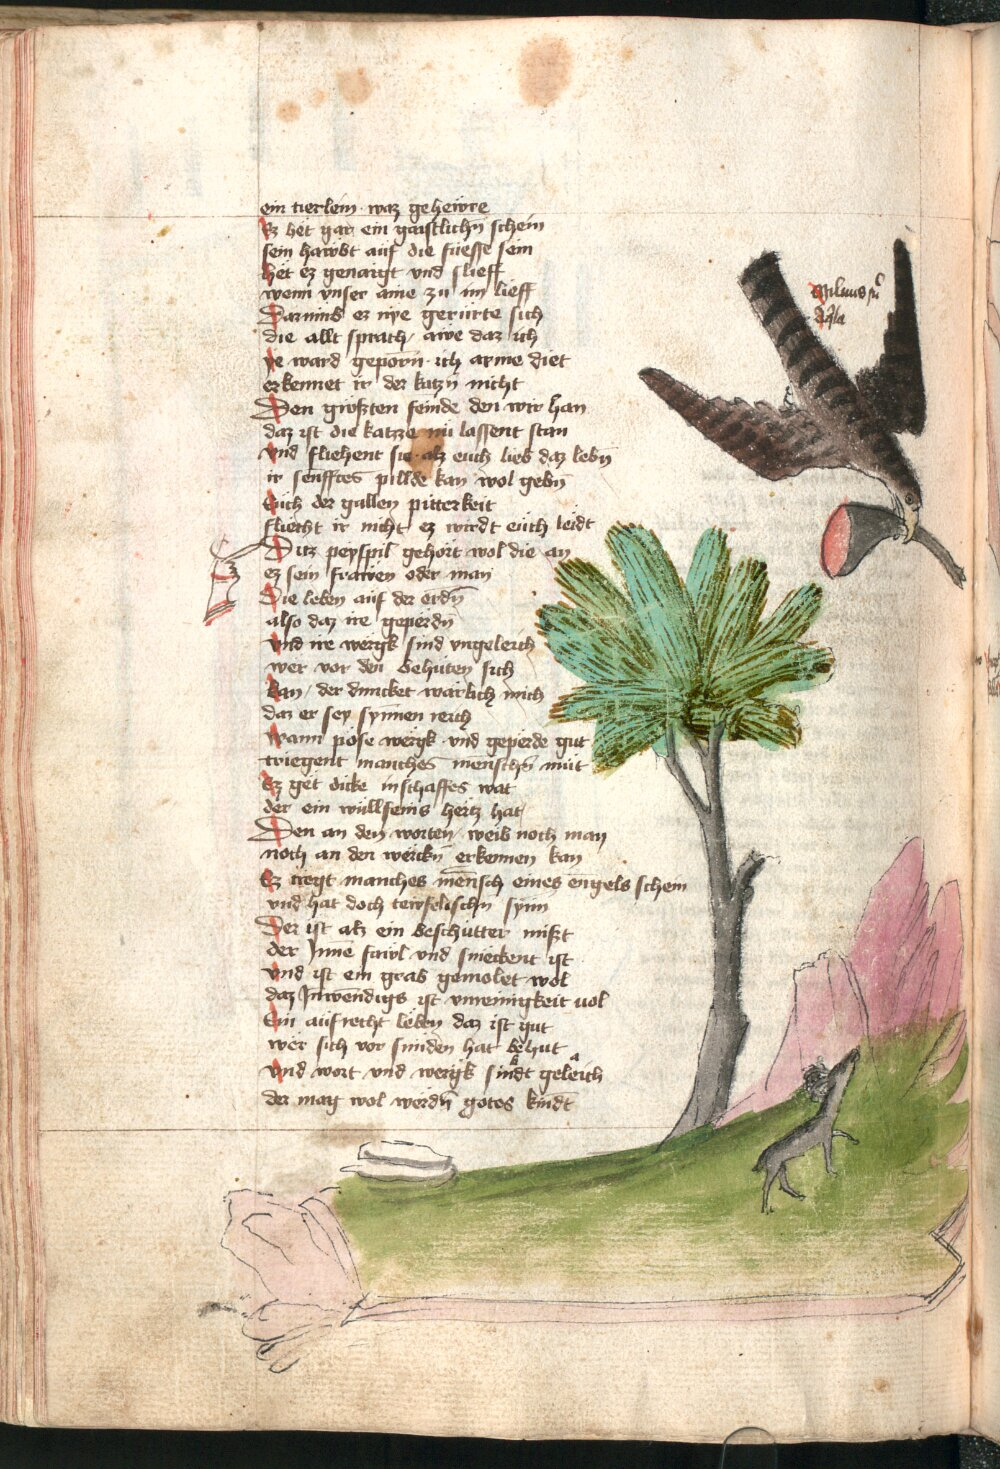 ein tierlein · waz gehewre
Ez het gar ein gaistlichñ schein
sein hawbt auf die fuesse sein
het ez genaigt vnd slieff
wenn vnser aine zu im lieff
Darumb ez nÿe gerürte sich
die allt sprach / awe daz ich
ye ward geporñ · ich arme diet
erkennet ir der katzñ nicht
Den größten feinde den wir han
daz ist die katzze nü lassent stan
vnd fliehent sie · alz euch lieb daz lebñ
ir senfftes pillde kan wol gebñ
Euch der gallen pitterkeit
flieht ir nicht ez wirdt euch leidt
Ditz peyspil gehört wol die an
ez sein frawen oder man
Die leben auf der erdñ
also daz ire geperdñ
vnd ire wergk sind vngeleich
wer vor den behüten sich
kan / der duncket warlich mich
daz er sey synnen reich
wann pöse wergk · vnd geperde gut
triegent manches menschñ müt
Ez get dicke in schaffes wat
der ein wüllfeins hertz hat
Den an den worten / weib noch man
noch an den werckñ erkennen kan
Ez tregt manches mensch eines engels schein
vnd hat doch tewfelischñ synn
Der ist alz ein beschütter mist
der Inne fawl vnd smeckent ist
vnd ist ein grab gemolet wol
daz Inwendigs ist vnreinigkeit uol
Ein aufrecht leben daz ist gut
wer sich vor sünden hat behut
vnd wort vnd wergk sindt geleich
der mag wol werdñ gotes kindt
Miluus